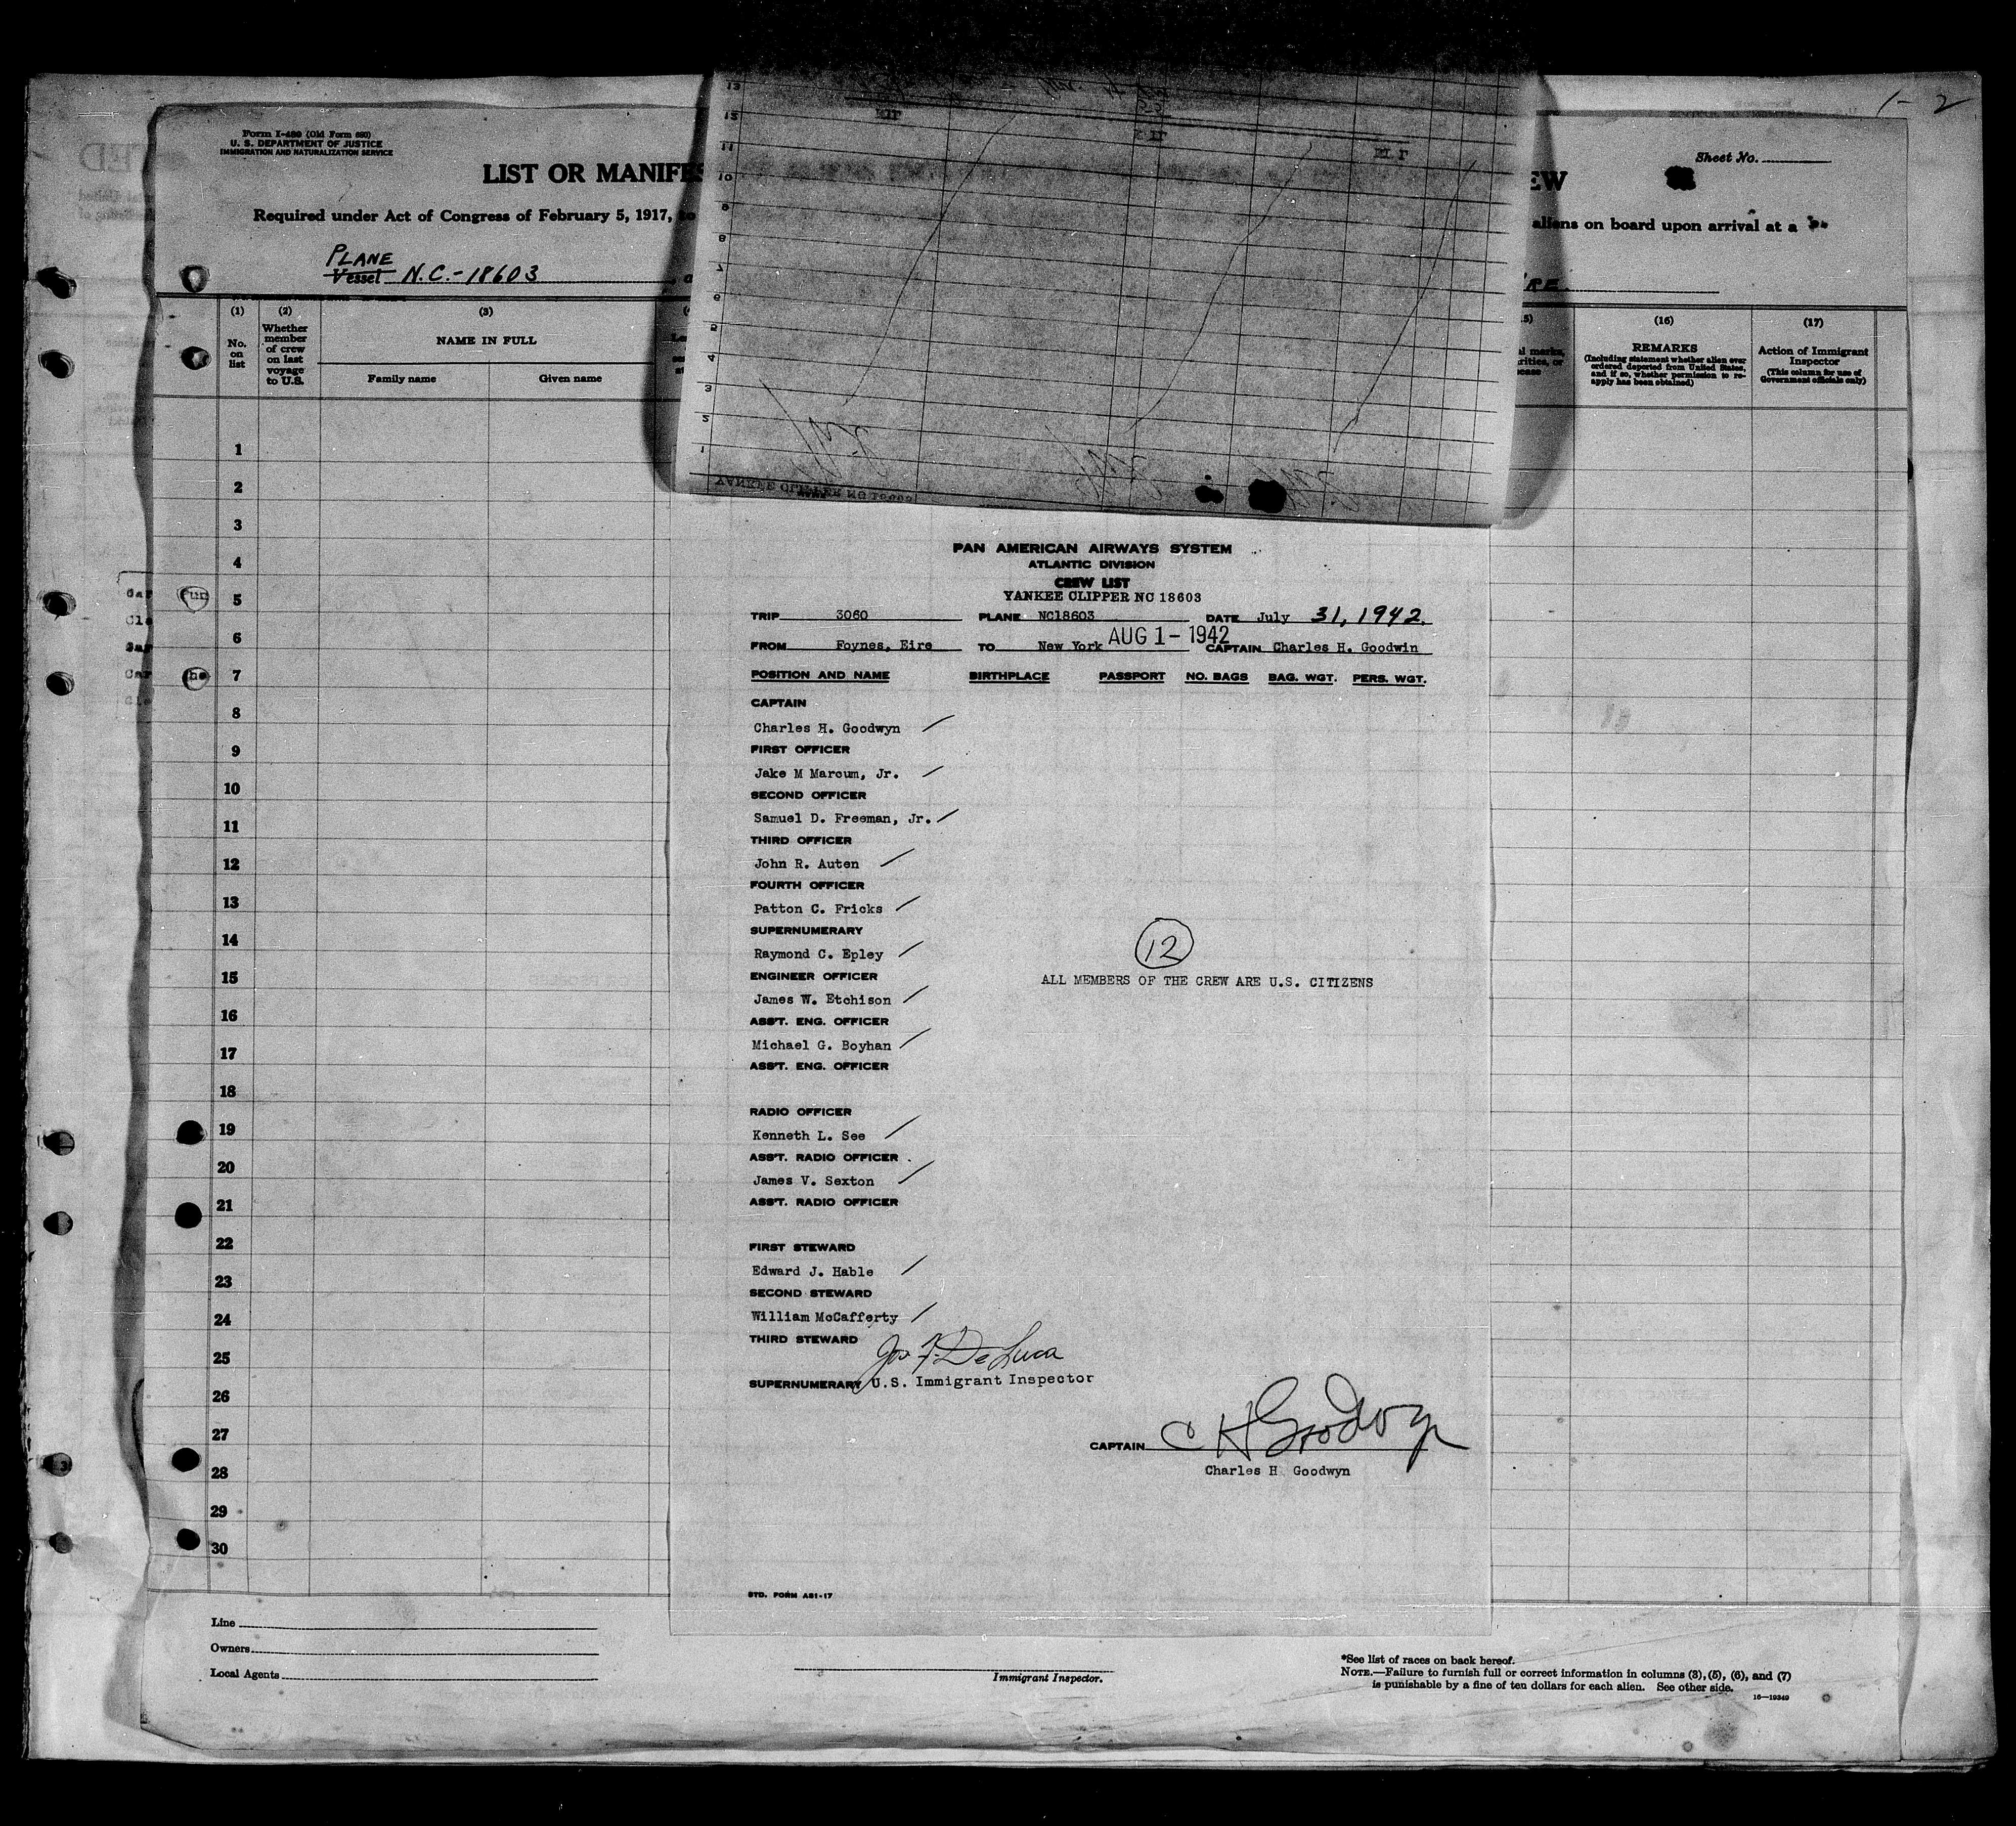 1-2
Form I-480 (Old Form 680)
U. S. DEPARTMENT OF JUSTICE
IMMIGRATION AND NATURALIZATION SERVICE
Sheet No.
LIST OR MANIFES
EW
Required under Act of Congress of February 5, 1917,
aliens on board upon arrival at a
PLANE
Vessel N.C.-18603
RE.
(1) (2) (3)
No. on list
Whether member of crew on last voyage to U.S.
NAME IN FULL
Family name Given name
(16) (17)
REMARKS
(Including statement whether alien ever ordered deported from United States, and if so, whether permission to re-apply has been obtained)
Action of Immigrant Inspector
(This column for use of Government officials only)
13
12
11
10
9
8
7
6
5
4
3
2
1
YANKEE CLIPPER NC 18603
PAN AMERICAN AIRWAYS SYSTEM
ATLANTIC DIVISION
CREW LIST
YANKEE CLIPPER NC 18603
TRIP 3060 PLANE NC18603 DATE July 31, 1942.
AUG 1 - 1942
FROM Foynes, Eire TO New York CAPTAIN Charles H. Goodwin
POSITION AND NAME BIRTHPLACE PASSPORT NO. BAGS BAG. WGT. PERS. WGT.
CAPTAIN
Charles H. Goodwyn
FIRST OFFICER
Jake M Marcum, Jr.
SECOND OFFICER
Samuel D. Freeman, Jr.
THIRD OFFICER
John R. Auten
FOURTH OFFICER
Patton C. Fricks
SUPERNUMERARY
Raymond C. Epley
12
ENGINEER OFFICER
ALL MEMBERS OF THE CREW ARE U.S. CITIZENS
James W. Etchison
ASS'T. ENG. OFFICER
Michael G. Boyhan
ASS'T. ENG. OFFICER
RADIO OFFICER
Kenneth L. See
ASS'T. RADIO OFFICER
James V. Sexton
ASS'T. RADIO OFFICER
FIRST STEWARD
Edward J. Hable
SECOND STEWARD
William McCafferty
THIRD STEWARD
Jos F. DeLuca
SUPERNUMERARY U.S. Immigrant Inspector
CAPTAIN C H Goodwyn
Charles H Goodwyn
STD. FORM AS1-17
1
2
3
4
5
6
7
8
9
10
11
12
13
14
15
16
17
18
19
20
21
22
23
24
25
26
27
28
29
30
Line
Owners
Local Agents
Immigrant Inspector.
*See list of races on back hereof.
NOTE.—Failure to furnish full or correct information in columns (3), (5), (6), and (7)
is punishable by a fine of ten dollars for each alien. See other side.
16—19349